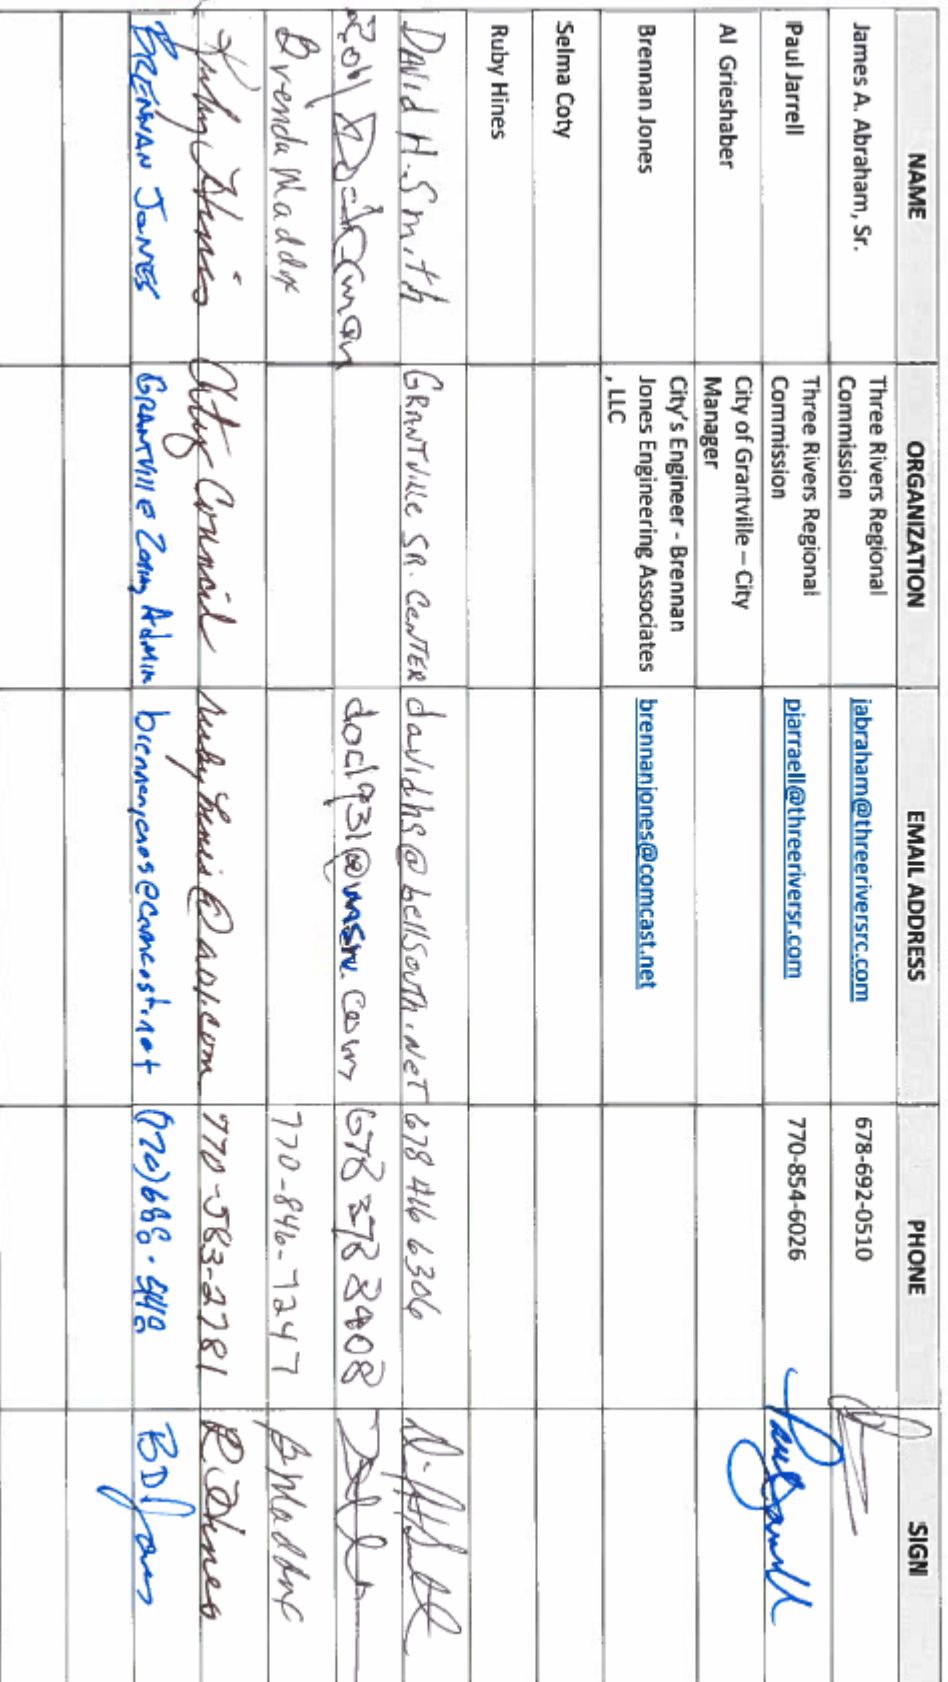 NAME ORGANIZATION EMAIL ADDRESS PHONE SIGN
James A. Abraham, Sr. Three Rivers Regional Commission jabraham@threeriversrc.com 678-692-0510
Paul Jarrell Three Rivers Regional Commission pjarraell@threeriversr.com 770-854-6026 Paul Jarrell
Al Grieshaber City of Grantville – City Manager
Brennan Jones City's Engineer - Brennan Jones Engineering Associates , LLC brennanjones@comcast.net
Selma Coty
Ruby Hines
DAVID H. Smith GRANTVille SR. CENTER davidhs@bellsouth.NeT 678 416 6306
678 378 8408
Brenda Maddox 770-846-7247 B Maddox
Ruby Hines City Council rubyhines@aol.com 770-583-2781 R Hines
BRENNAN JONES GRANTVILLE Zoning Admin brennanjones@comcast.net